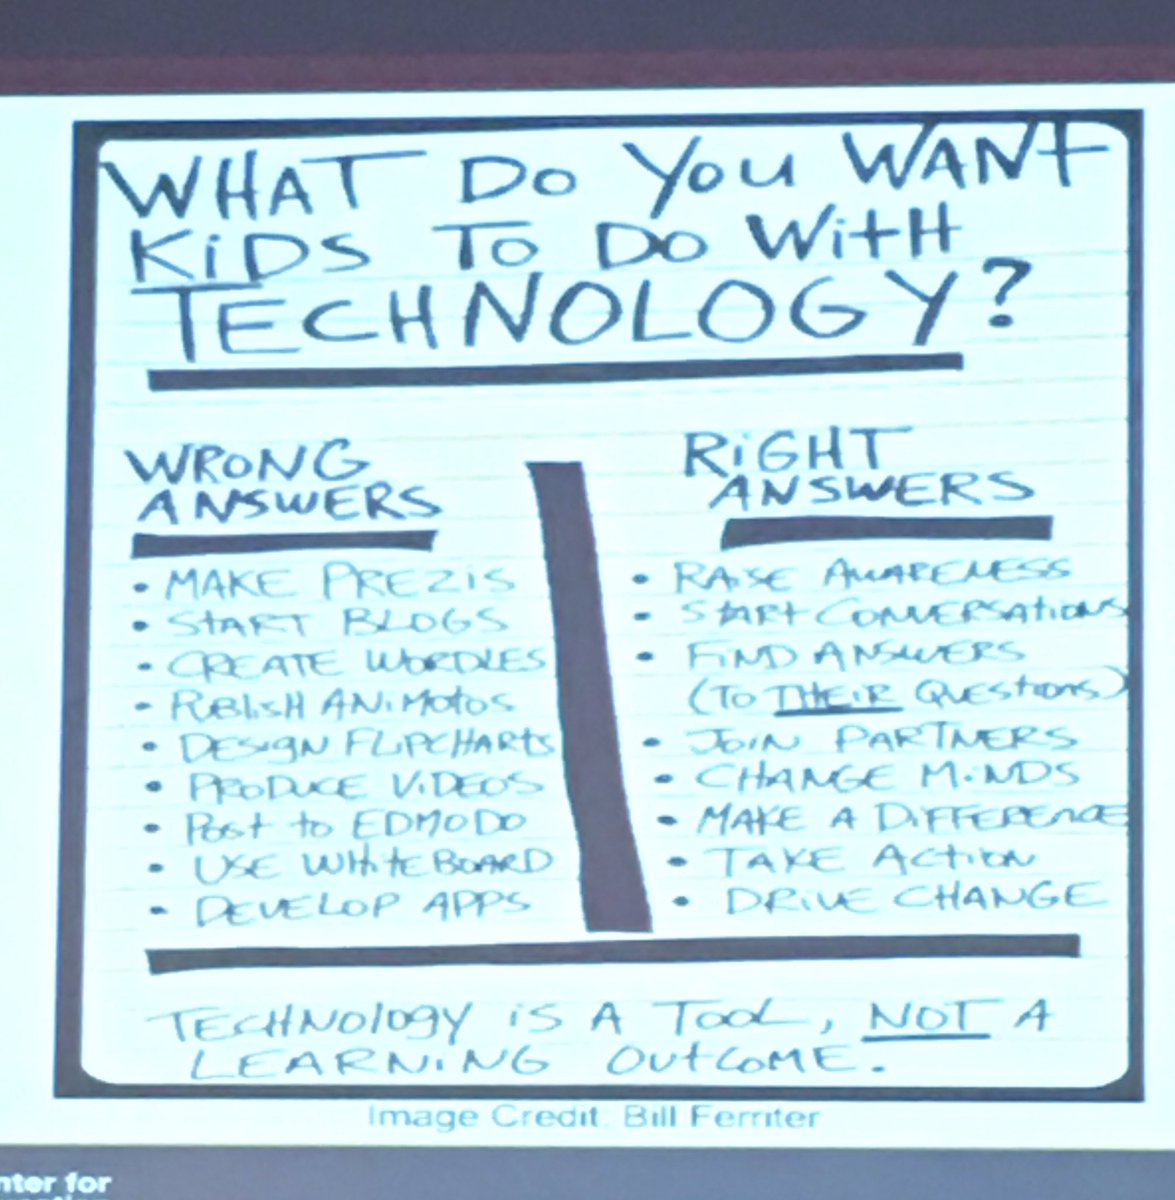 WHAT DO YOU WANT
KiDS TO DO WitH
TECHNOLOGY?
WRONG
ANSWERS
• MAKE PREZIS
• START BLOGS
• CREATE WORDLES
• PUBLISH ANiMOtOS
• DESIGN FLIPCHARTS
• PRODUCE ViDEOS
• POST to EDMODO
• USE WHitEBOARD
• DEVELOP APPS
RiGHT
ANSWERS
• RAiSE AWARENESS
• START CONVERSAtiONS
• FiND ANSWERS
(TO THEIR QUEStiONS)
• JOIN PARTNERS
• CHANGE MiNDS
• MAKE A DiFFERENCE
• TAKE ACtiON
• DRiVE CHANGE
TECHNOlOgy iS A TOOL, NOT A
LEARNiNG OUtCOME.
Image Credit: Bill Ferriter
nter for